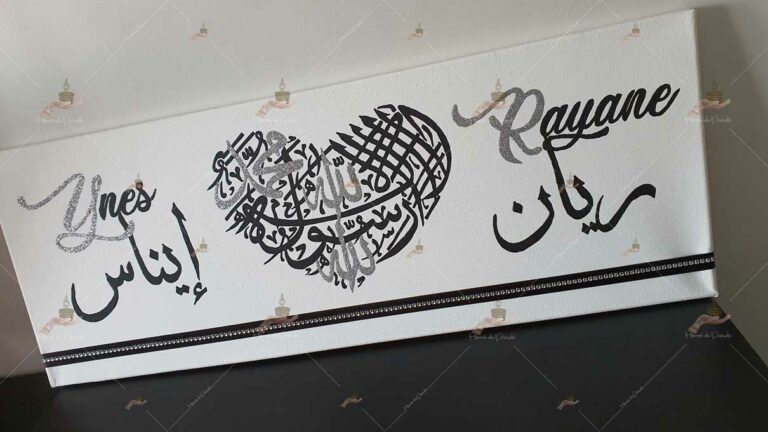 Ynes
إيناس
لا إله إلا الله محمد رسول الله
Rayane
ريان